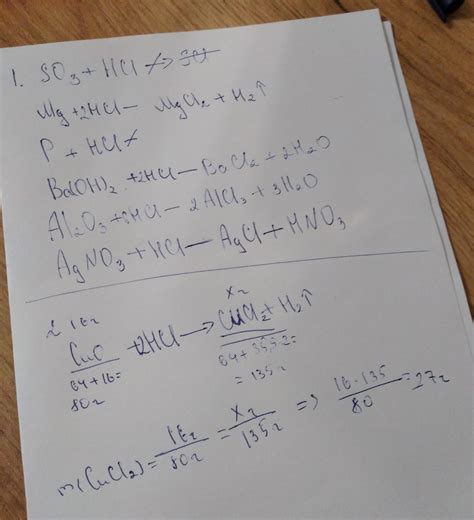 1. SO₃ + HCl ≠>
Mg + 2HCl — MgCl₂ + H₂↑
P + HCl ≠
Ba(OH)₂ + 2HCl — BaCl₂ + 2H₂O
Al₂O₃ + 6HCl — 2AlCl₃ + 3H₂O
AgNO₃ + HCl — AgCl + HNO₃
2 16г xг
CuO + 2HCl → CuCl₂ + H₂↑
64+16= 64+35,5·2=
80г = 135г
m(CuCl₂) = 16г/80г = xг/135г => 16·135/80 = 27г